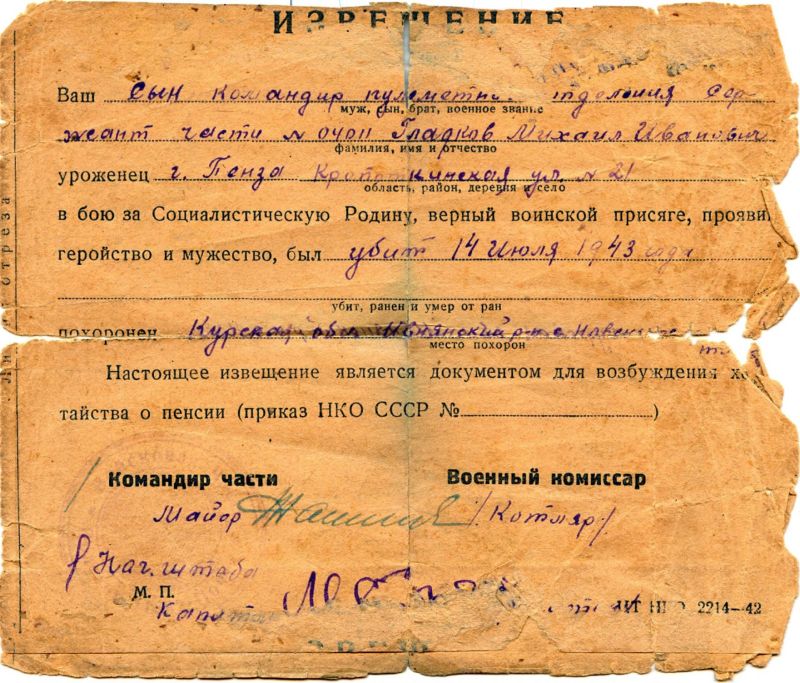 ИЗВЕЩЕНИЕ
Ваш Сын командир пулеметн отделения Сер-
муж, сын, брат, военное звание
жант части № 04011 Гладков Михаил Иванович
фамилия, имя и отчество
уроженец г. Пенза Кропоткинская ул. № 21
область, район, деревня и село
в бою за Социалистическую Родину, верный воинской присяге, прояви
геройство и мужество, был убит 14 Июля 1943 года
убит, ранен и умер от ран
похоронен Курская обл.
место похорон
Настоящее извещение является документом для возбуждения хо
тайства о пенсии (приказ НКО СССР № )
Командир части Военный комиссар
Майор /Котляр/
Нач. штаба
М. П.
Капитан
2214—42